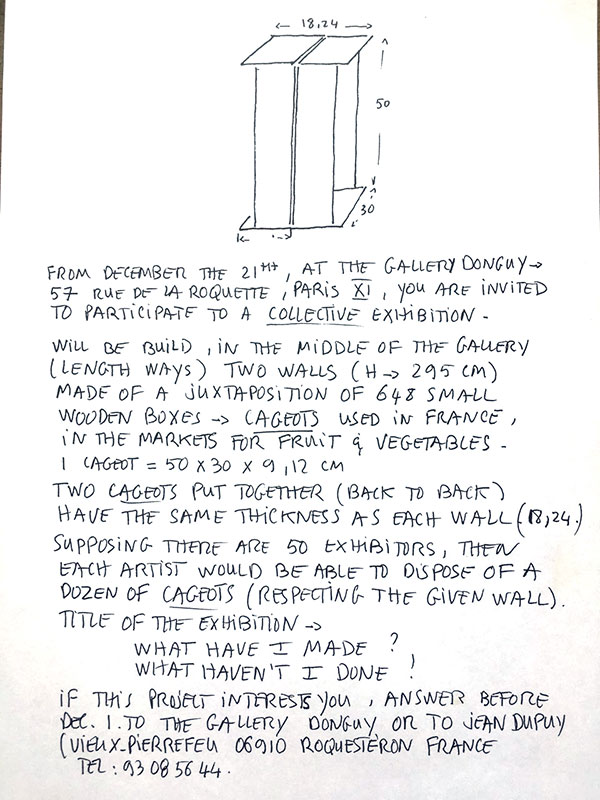 18,24
50
30
FROM DECEMBER THE 21TH, AT THE GALLERY DONGUY →
57 RUE DE LA ROQUETTE, PARIS XI, YOU ARE INVITED
TO PARTICIPATE TO A COLLECTIVE EXHIBITION -
WILL BE BUILD, IN THE MIDDLE OF THE GALLERY
(LENGTH WAYS) TWO WALLS (H → 295 CM)
MADE OF A JUXTAPOSITION OF 648 SMALL
WOODEN BOXES → CAGEOTS USED IN FRANCE,
IN THE MARKETS FOR FRUIT & VEGETABLES -
1 CAGEOT = 50 X 30 X 9,12 CM
TWO CAGEOTS PUT TOGETHER (BACK TO BACK)
HAVE THE SAME THICKNESS AS EACH WALL (18,24.)
SUPPOSING THERE ARE 50 EXHIBITORS, THEN
EACH ARTIST WOULD BE ABLE TO DISPOSE OF A
DOZEN OF CAGEOTS (RESPECTING THE GIVEN WALL).
TITLE OF THE EXHIBITION →
WHAT HAVE I MADE ?
WHAT HAVEN'T I DONE !
IF THIS PROJECT INTERESTS YOU, ANSWER BEFORE
DEC. 1. TO THE GALLERY DONGUY OR TO JEAN DUPUY
(VIEUX-PIERREFEU 06910 ROQUESTÉRON FRANCE
TEL : 93 08 56 44.